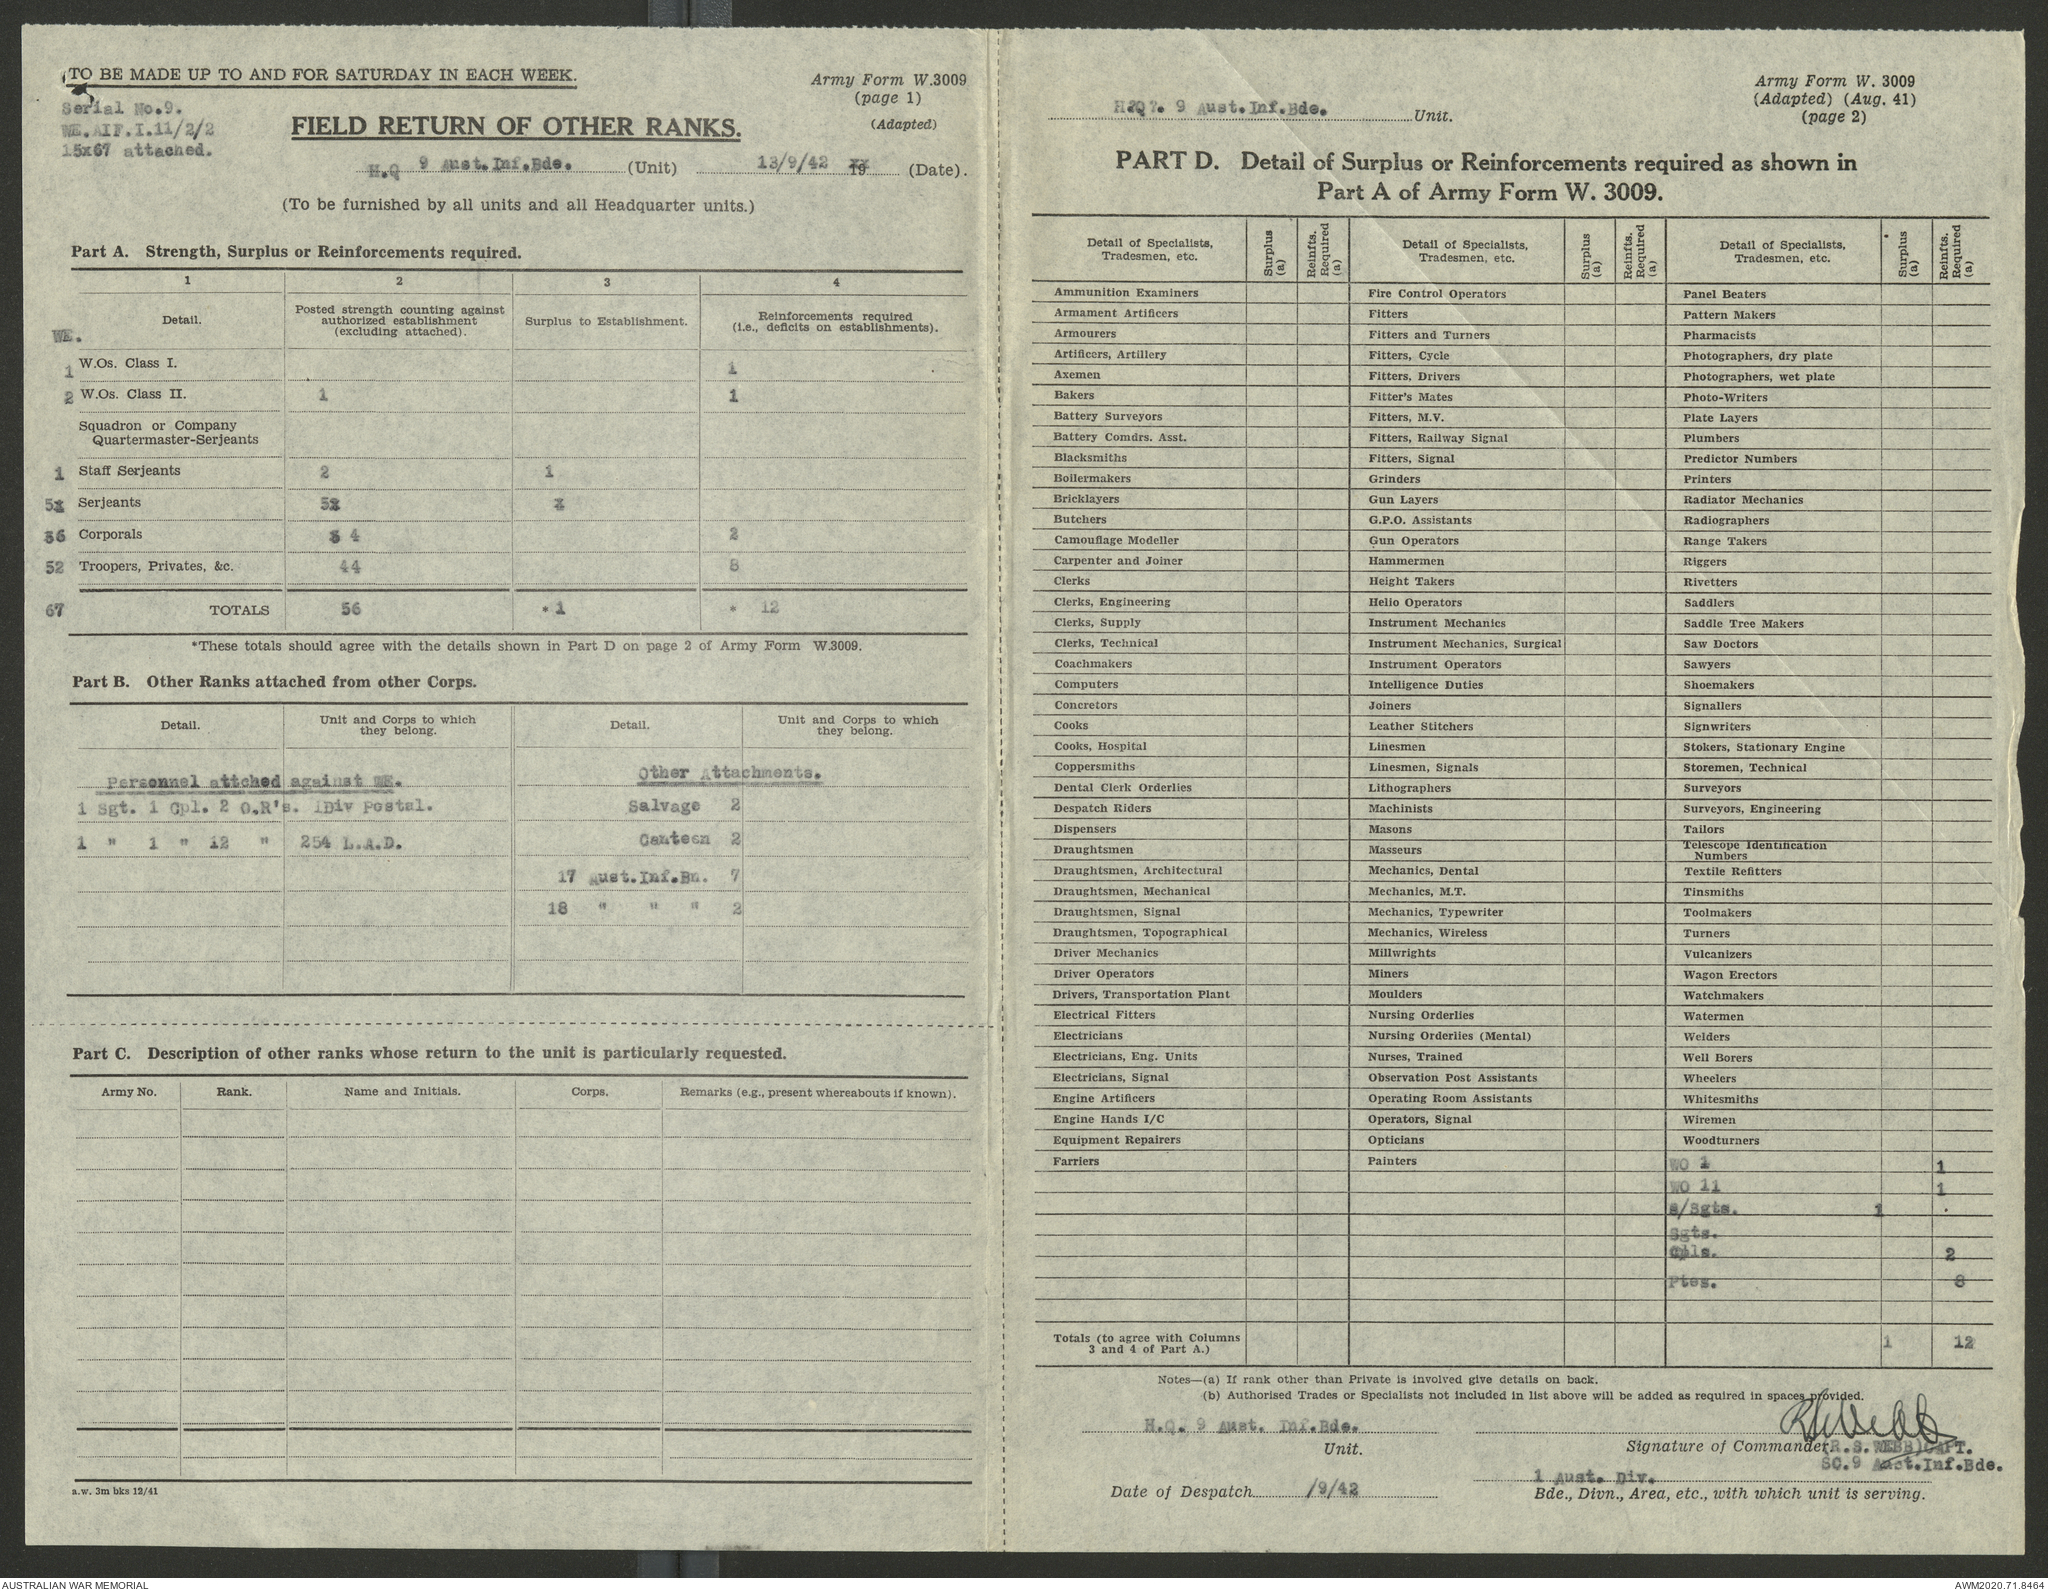 TO BE MADE UP TO AND FOR SATURDAY IN EACH WEEK.
Serial No.9.
WE.AIF.I.11/2/2
15x67 attached.
Army Form W.3009
(page 1)
(Adapted)
FIELD RETURN OF OTHER RANKS.
H.Q 9 Aust.Inf.Bde. (Unit) 13/9/42 19 (Date).
(To be furnished by all units and all Headquarter units.)
Part A. Strength, Surplus or Reinforcements required.
1 2 3 4
WE. Detail. Posted strength counting against authorized establishment (excluding attached). Surplus to Establishment. Reinforcements required (i.e., deficits on establishments).
1 W.Os. Class I. 1
2 W.Os. Class II. 1 1
Squadron or Company
Quartermaster-Serjeants
1 Staff Serjeants 2 1
5 Serjeants 5
6 Corporals 4 2
52 Troopers, Privates, &c. 44 8
67 TOTALS 56 * 1 * 12
*These totals should agree with the details shown in Part D on page 2 of Army Form W.3009.
Part B. Other Ranks attached from other Corps.
Detail. Unit and Corps to which they belong. Detail. Unit and Corps to which they belong.
Personnel attched against WE. Other Attachments.
1 Sgt. 1 Cpl. 2 O.R's. 1Div Postal. Salvage 2
1 " 1 " 12 " 254 L.A.D. Canteen 2
17 Aust.Inf.Bn. 7
18 " " " 2
Part C. Description of other ranks whose return to the unit is particularly requested.
Army No. Rank. Name and Initials. Corps. Remarks (e.g., present whereabouts if known).
a.w. 3m bks 12/41
H.Q. 9 Aust.Inf.Bde. Unit.
Army Form W. 3009
(Adapted) (Aug. 41)
(page 2)
PART D. Detail of Surplus or Reinforcements required as shown in
Part A of Army Form W. 3009.
Detail of Specialists, Tradesmen, etc. Surplus (a) Reinfts. Required (a) Detail of Specialists, Tradesmen, etc. Surplus (a) Reinfts. Required (a) Detail of Specialists, Tradesmen, etc. Surplus (a) Reinfts. Required (a)
Ammunition Examiners Fire Control Operators Panel Beaters
Armament Artificers Fitters Pattern Makers
Armourers Fitters and Turners Pharmacists
Artificers, Artillery Fitters, Cycle Photographers, dry plate
Axemen Fitters, Drivers Photographers, wet plate
Bakers Fitter's Mates Photo-Writers
Battery Surveyors Fitters, M.V. Plate Layers
Battery Comdrs. Asst. Fitters, Railway Signal Plumbers
Blacksmiths Fitters, Signal Predictor Numbers
Boilermakers Grinders Printers
Bricklayers Gun Layers Radiator Mechanics
Butchers G.P.O. Assistants Radiographers
Camouflage Modeller Gun Operators Range Takers
Carpenter and Joiner Hammermen Riggers
Clerks Height Takers Rivetters
Clerks, Engineering Helio Operators Saddlers
Clerks, Supply Instrument Mechanics Saddle Tree Makers
Clerks, Technical Instrument Mechanics, Surgical Saw Doctors
Coachmakers Instrument Operators Sawyers
Computers Intelligence Duties Shoemakers
Concretors Joiners Signallers
Cooks Leather Stitchers Signwriters
Cooks, Hospital Linesmen Stokers, Stationary Engine
Coppersmiths Linesmen, Signals Storemen, Technical
Dental Clerk Orderlies Lithographers Surveyors
Despatch Riders Machinists Surveyors, Engineering
Dispensers Masons Tailors
Draughtsmen Masseurs Telescope Identification Numbers
Draughtsmen, Architectural Mechanics, Dental Textile Refitters
Draughtsmen, Mechanical Mechanics, M.T. Tinsmiths
Draughtsmen, Signal Mechanics, Typewriter Toolmakers
Draughtsmen, Topographical Mechanics, Wireless Turners
Driver Mechanics Millwrights Vulcanizers
Driver Operators Miners Wagon Erectors
Drivers, Transportation Plant Moulders Watchmakers
Electrical Fitters Nursing Orderlies Watermen
Electricians Nursing Orderlies (Mental) Welders
Electricians, Eng. Units Nurses, Trained Well Borers
Electricians, Signal Observation Post Assistants Wheelers
Engine Artificers Operating Room Assistants Whitesmiths
Engine Hands I/C Operators, Signal Wiremen
Equipment Repairers Opticians Woodturners
Farriers Painters WO 1 1
WO 11 1
S/Sgts. 1
Sgts.
Cpls. 2
Ptes. 8
Totals (to agree with Columns 3 and 4 of Part A.) 1 12
Notes—(a) If rank other than Private is involved give details on back.
(b) Authorised Trades or Specialists not included in list above will be added as required in spaces provided.
H.Q. 9 Aust. Inf.Bde.
Unit.
Signature of Commander (R.S.WEBB)CAPT.
SC.9 Aust.Inf.Bde.
1 Aust. Div.
Date of Despatch /9/42
Bde., Divn., Area, etc., with which unit is serving.
AUSTRALIAN WAR MEMORIAL
AWM2020.71.8464